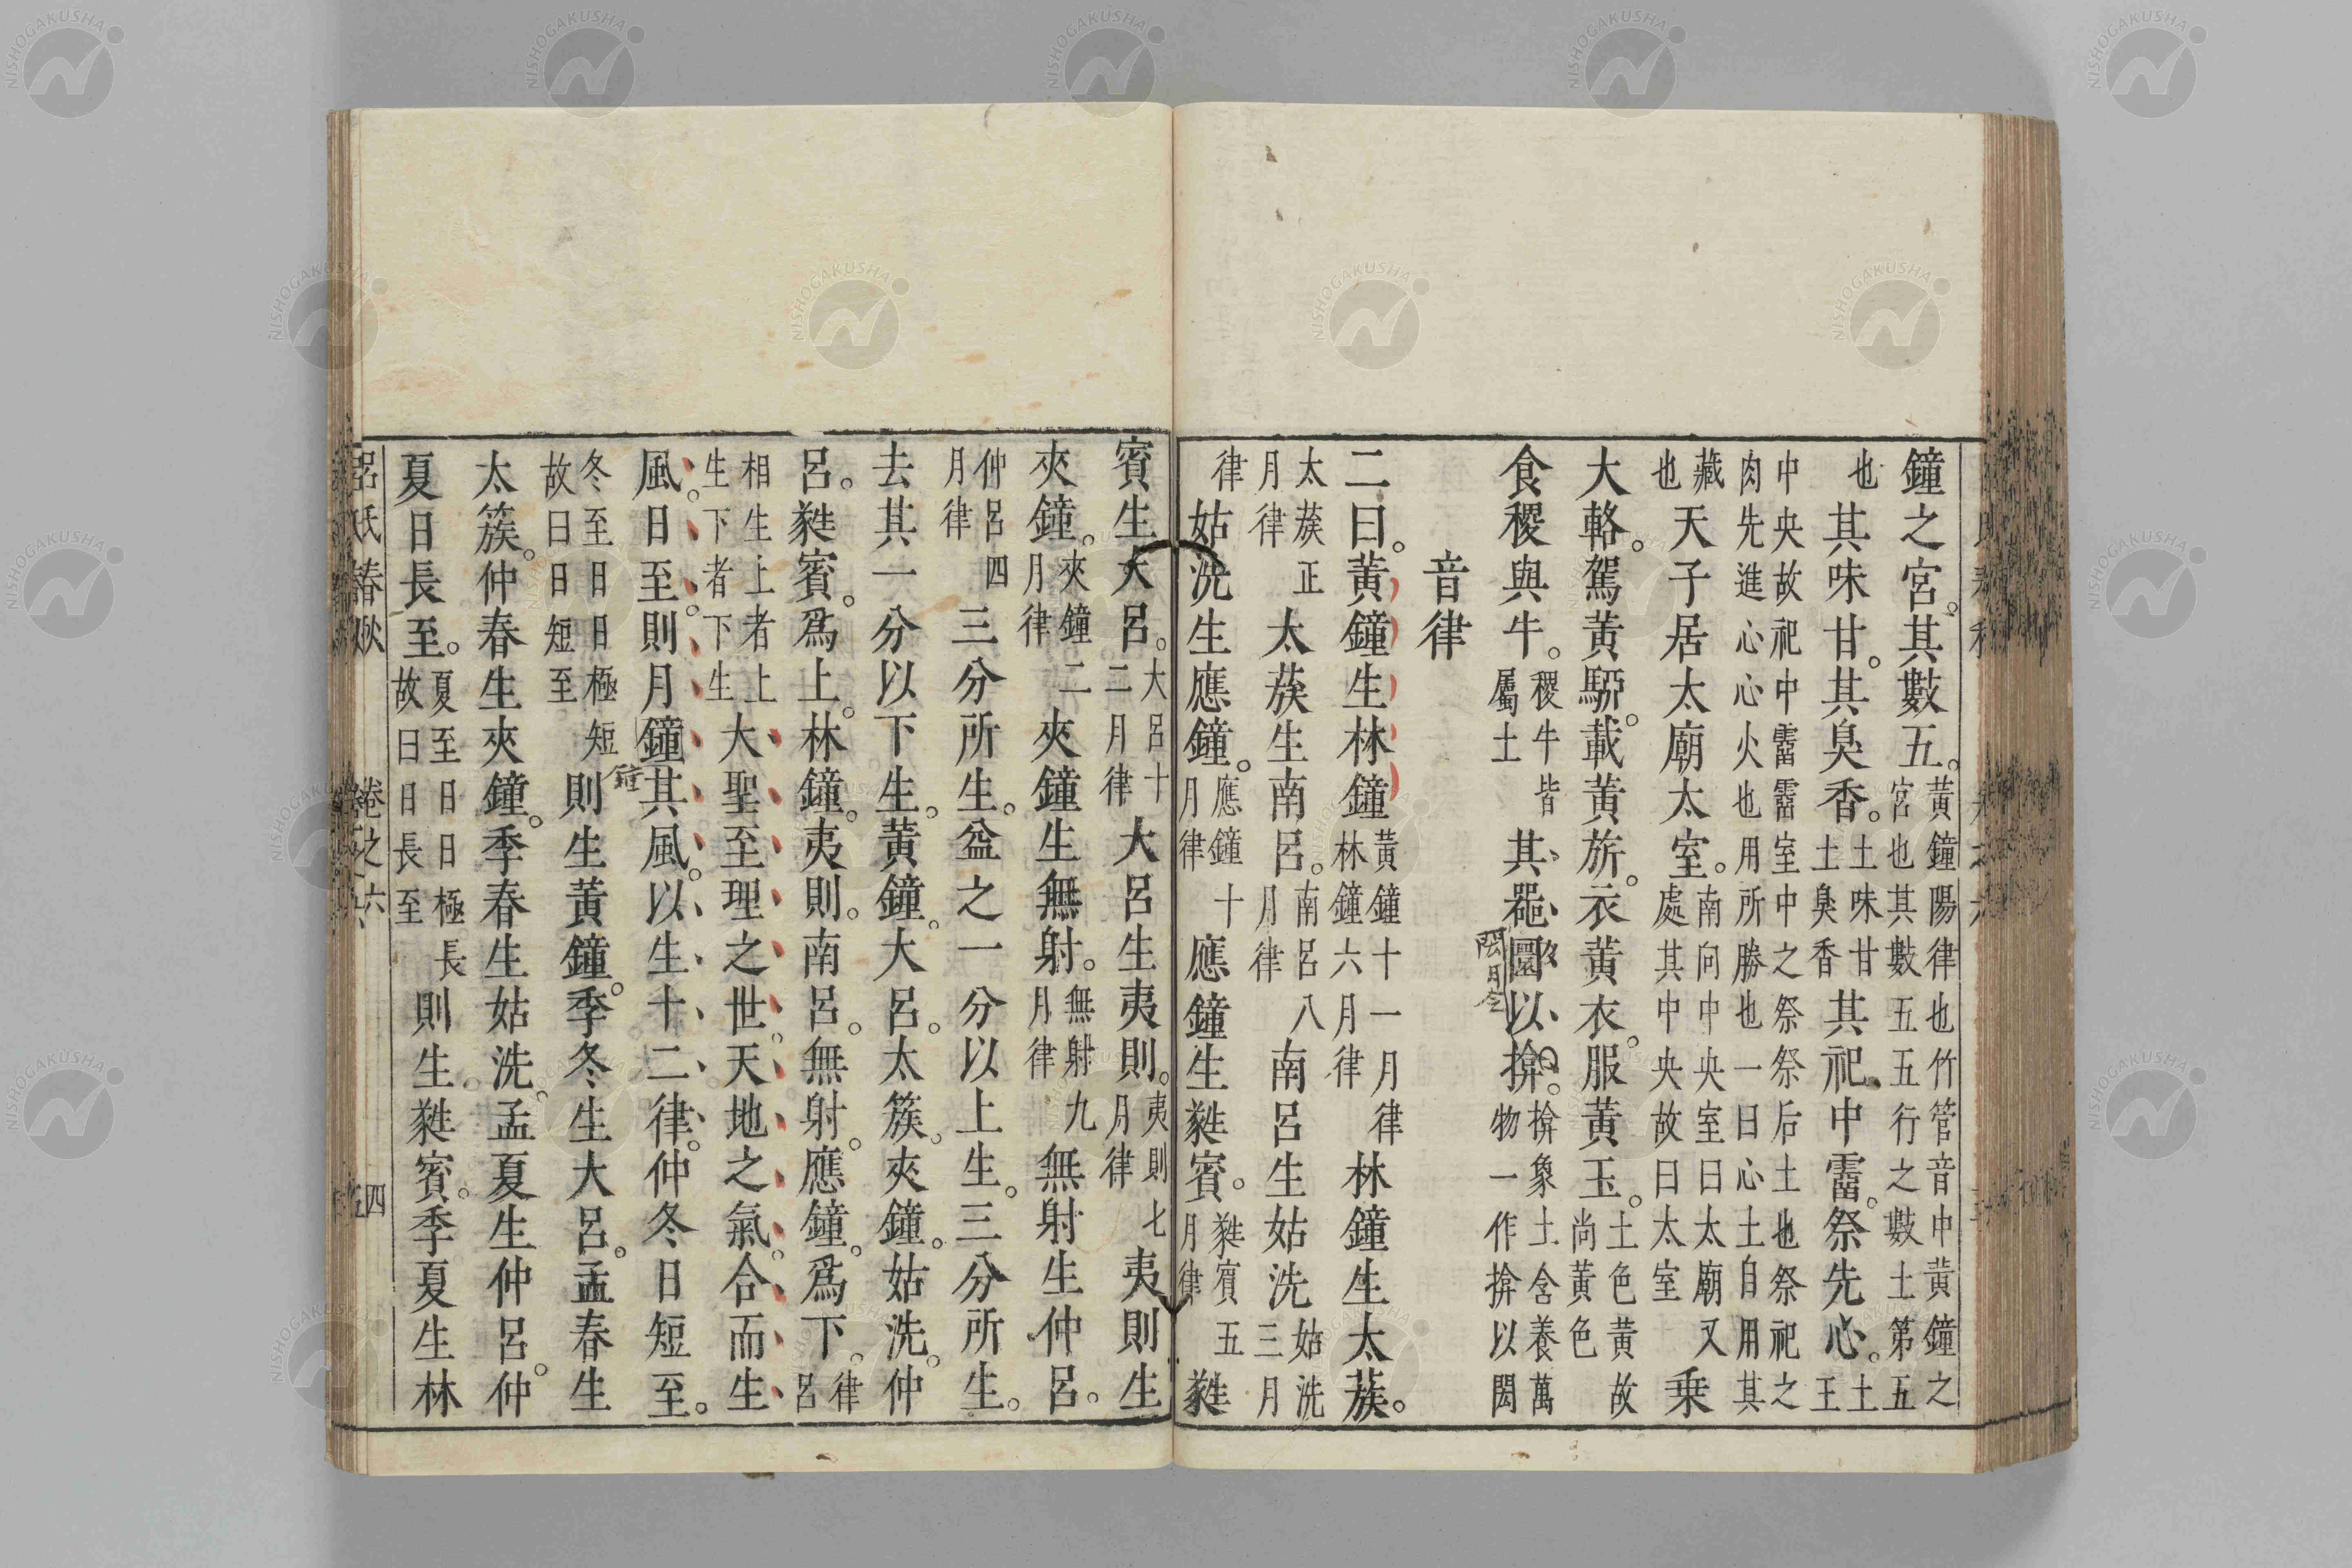 鐘之宮。其數五。黃鐘陽律也竹管音中黃鐘之宮也其數五五行之數土第五
也其味甘。其臭香。土味甘土臭香其祀中霤。祭先心。土王
中央故祀中霤霤室中之祭祭后土也祭祀之肉先進心心火也用所勝也一曰心土自用其
藏也天子居太廟太室。南向中央室曰太廟又處其中央故曰太室乗
大輅。駕黃駵。載黃旂。衣黃衣。服黃玉。土色黃故尚黃色
食稷與牛。稷牛皆屬土其噐圜以揜。揜象土含養萬物一作揜以閎
閎月令
音律
二曰。黃鐘生林鐘黃鐘十一月律林鐘六月律林鐘生太蔟。
太蔟正月律太蔟生南呂。南呂八月律南呂生姑洗姑洗三月
律姑洗生應鐘。應鐘十月律應鐘生蕤賓。蕤賓五月律蕤
賓生大呂。大呂十二月律大呂生夷則。夷則七月律夷則生
夾鐘。夾鐘二月律夾鐘生無射。無射九月律無射生仲呂。
仲呂四月律三分所生。益之一分以上生。三分所生。
去其一分以下生。黃鐘。大呂。太簇。夾鐘。姑洗。仲
呂。蕤賓。爲上。林鐘。夷則。南呂。無射。應鐘。爲下。律呂
相生上者上生下者下生大聖至理之世。天地之氣。合而生
風。日至。則月鐘其風。以生十二律。仲冬日短至。
鐘
冬至日日極短故曰日短至則生黃鐘。季冬生大呂。孟春生
太簇。仲春生夾鐘。季春生姑洗。孟夏生仲呂。仲
夏日長至。夏至日日極長故曰日長至則生蕤賓。季夏生林
呂氏春秋 卷之六 四